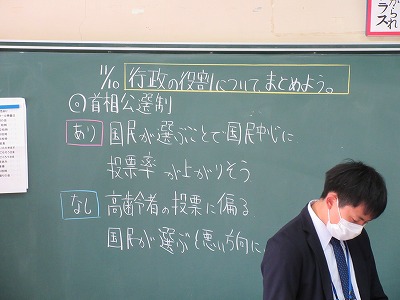 11/10 行政の役割について、まとめよう。
◎首相公選制
あり 国民が選ぶことで国民中心に
投票率が上がりそう
なし 高齢者の投票に偏る
国民が選ぶと悪い方向に